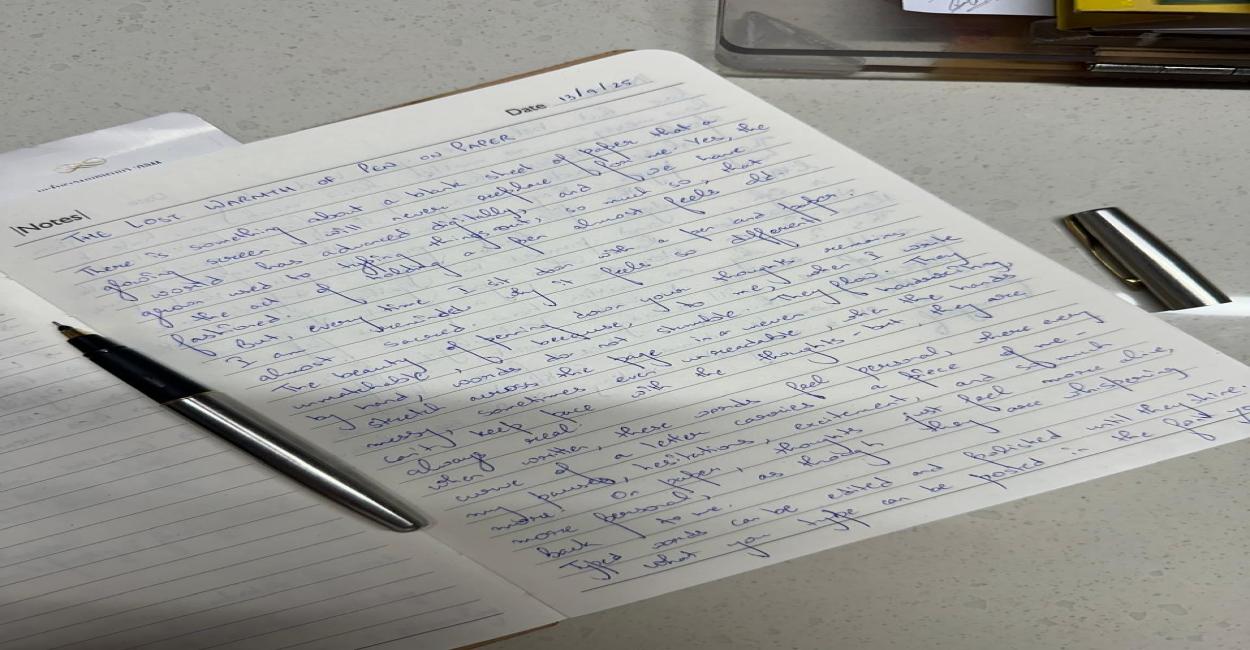 Date 13/9/25
|Notes|
THE LOST WARMTH OF PEN ON PAPER
There is something about a blank sheet of paper that a
glowing screen will never replace for me. Yes, the
world has advanced digitally, and we have
grown used to typing things out, so much so, that
the act of holding a pen almost feels old
fashioned.
But, every time I sit down with a pen and paper,
I am reminded why it feels so different,
almost sacred.
The beauty of penning down your thoughts remains
unmatchable, because, to me, when I write
by hand, words do not stumble. They flow. They
stretch across the page in a never handwriting,
messy, sometimes even unreadable, when the hands
can't keep pace with the thoughts - but, they are
always real.
When written, these words feel personal, where every
curve of a letter carries a piece of me -
my pauses, hesitations, excitement, and so much
more! On paper, thoughts just feel more alive,
more personal, as though they are whispering
back to me.
Typed words can be edited and polished until they shine.
what you type can be posted in the